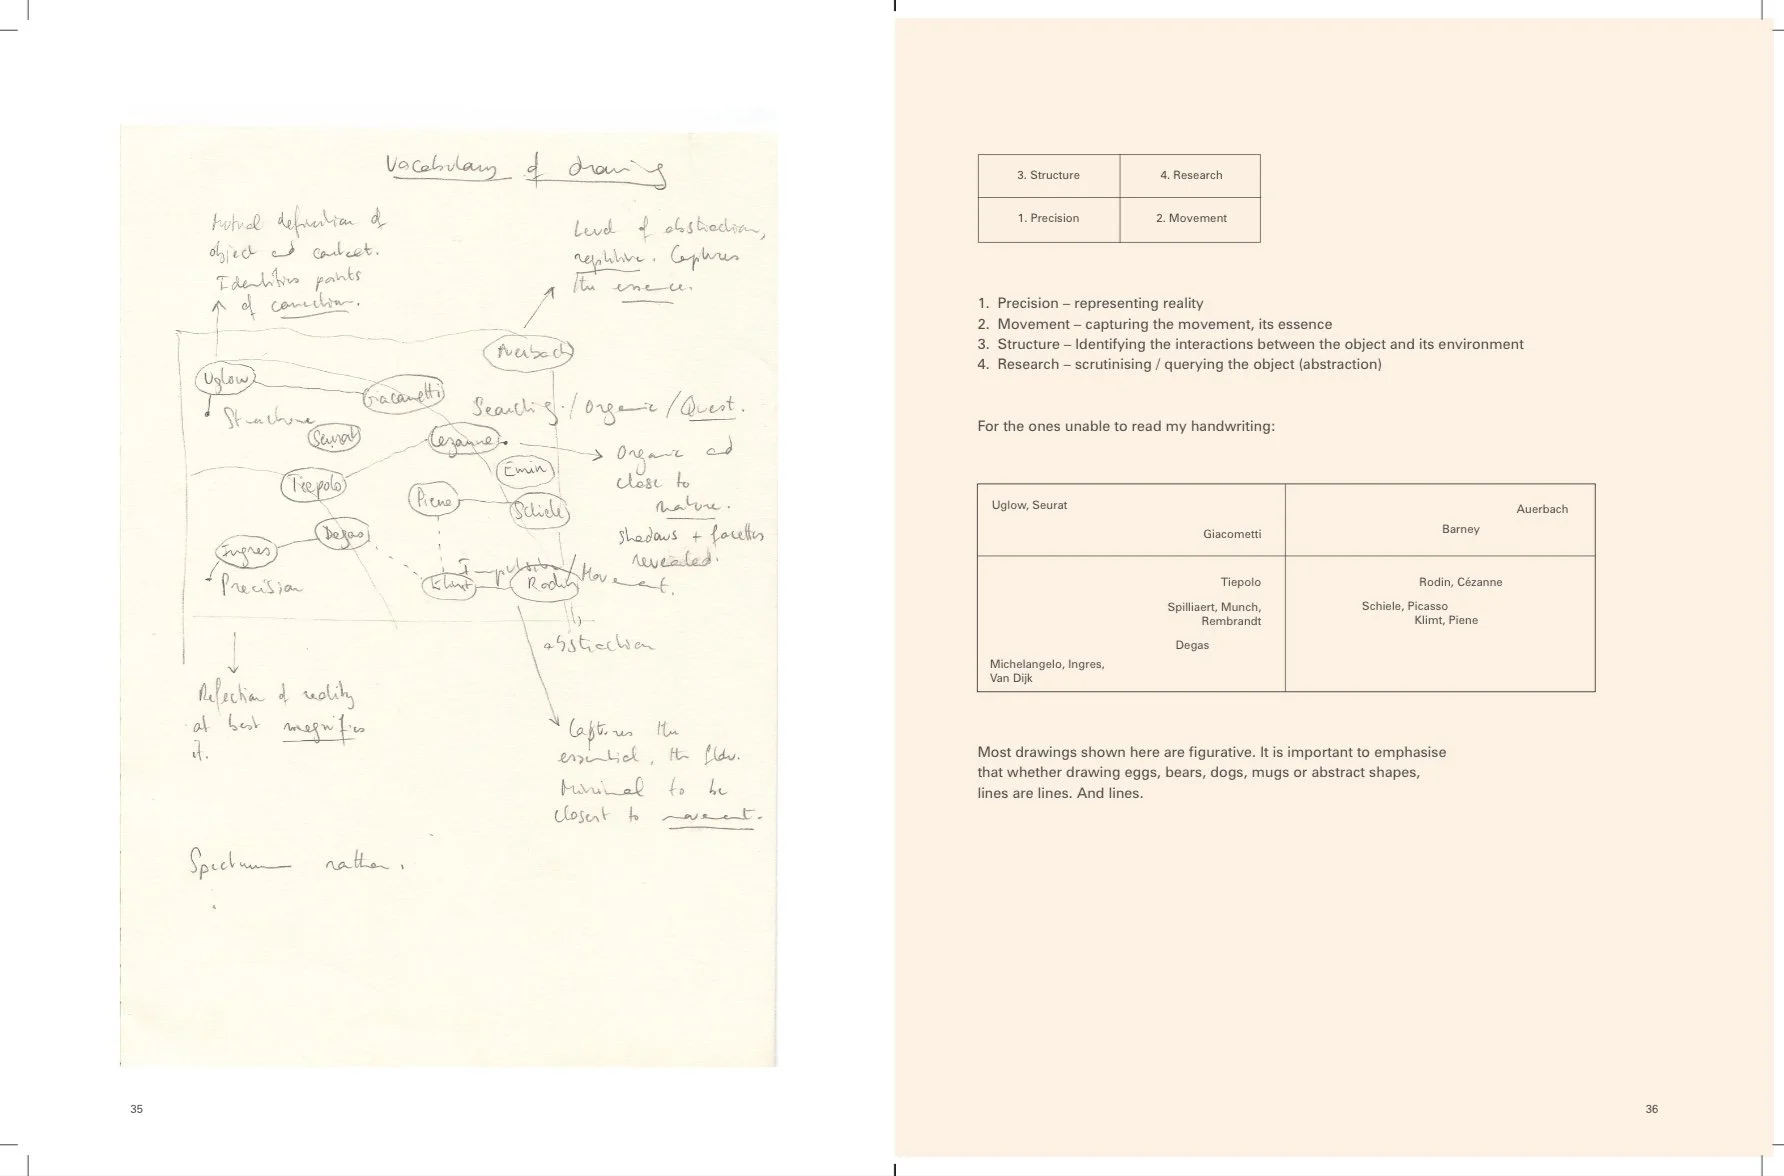 Vocabulary of drawing
Mutual definition of
object and context.
Identifies points
of connection.
Level of abstraction,
repetitive. Captures
the essence.
Auerbach
Uglow
Giacometti
Structure
Searching / Organic / Quest.
Seurat
Cezanne
Organic and
close to
nature.
shadows + facettes
revealed.
Emin
Tiepolo
Piene
Schiele
Degas
Ingres
Precision
Impulsion / Movement.
Klimt
Rodin
abstraction
Reflection of reality
at best magnifies
it.
Captures the
essential, the flow.
Minimal to be
closest to movement.
Spectrum rather.
35
3. Structure
4. Research
1. Precision
2. Movement
1. Precision – representing reality
2. Movement – capturing the movement, its essence
3. Structure – Identifying the interactions between the object and its environment
4. Research – scrutinising / querying the object (abstraction)
For the ones unable to read my handwriting:
Uglow, Seurat
Giacometti
Auerbach
Barney
Tiepolo
Spilliaert, Munch,
Rembrandt
Degas
Michelangelo, Ingres,
Van Dijk
Rodin, Cézanne
Schiele, Picasso
Klimt, Piene
Most drawings shown here are figurative. It is important to emphasise
that whether drawing eggs, bears, dogs, mugs or abstract shapes,
lines are lines. And lines.
36